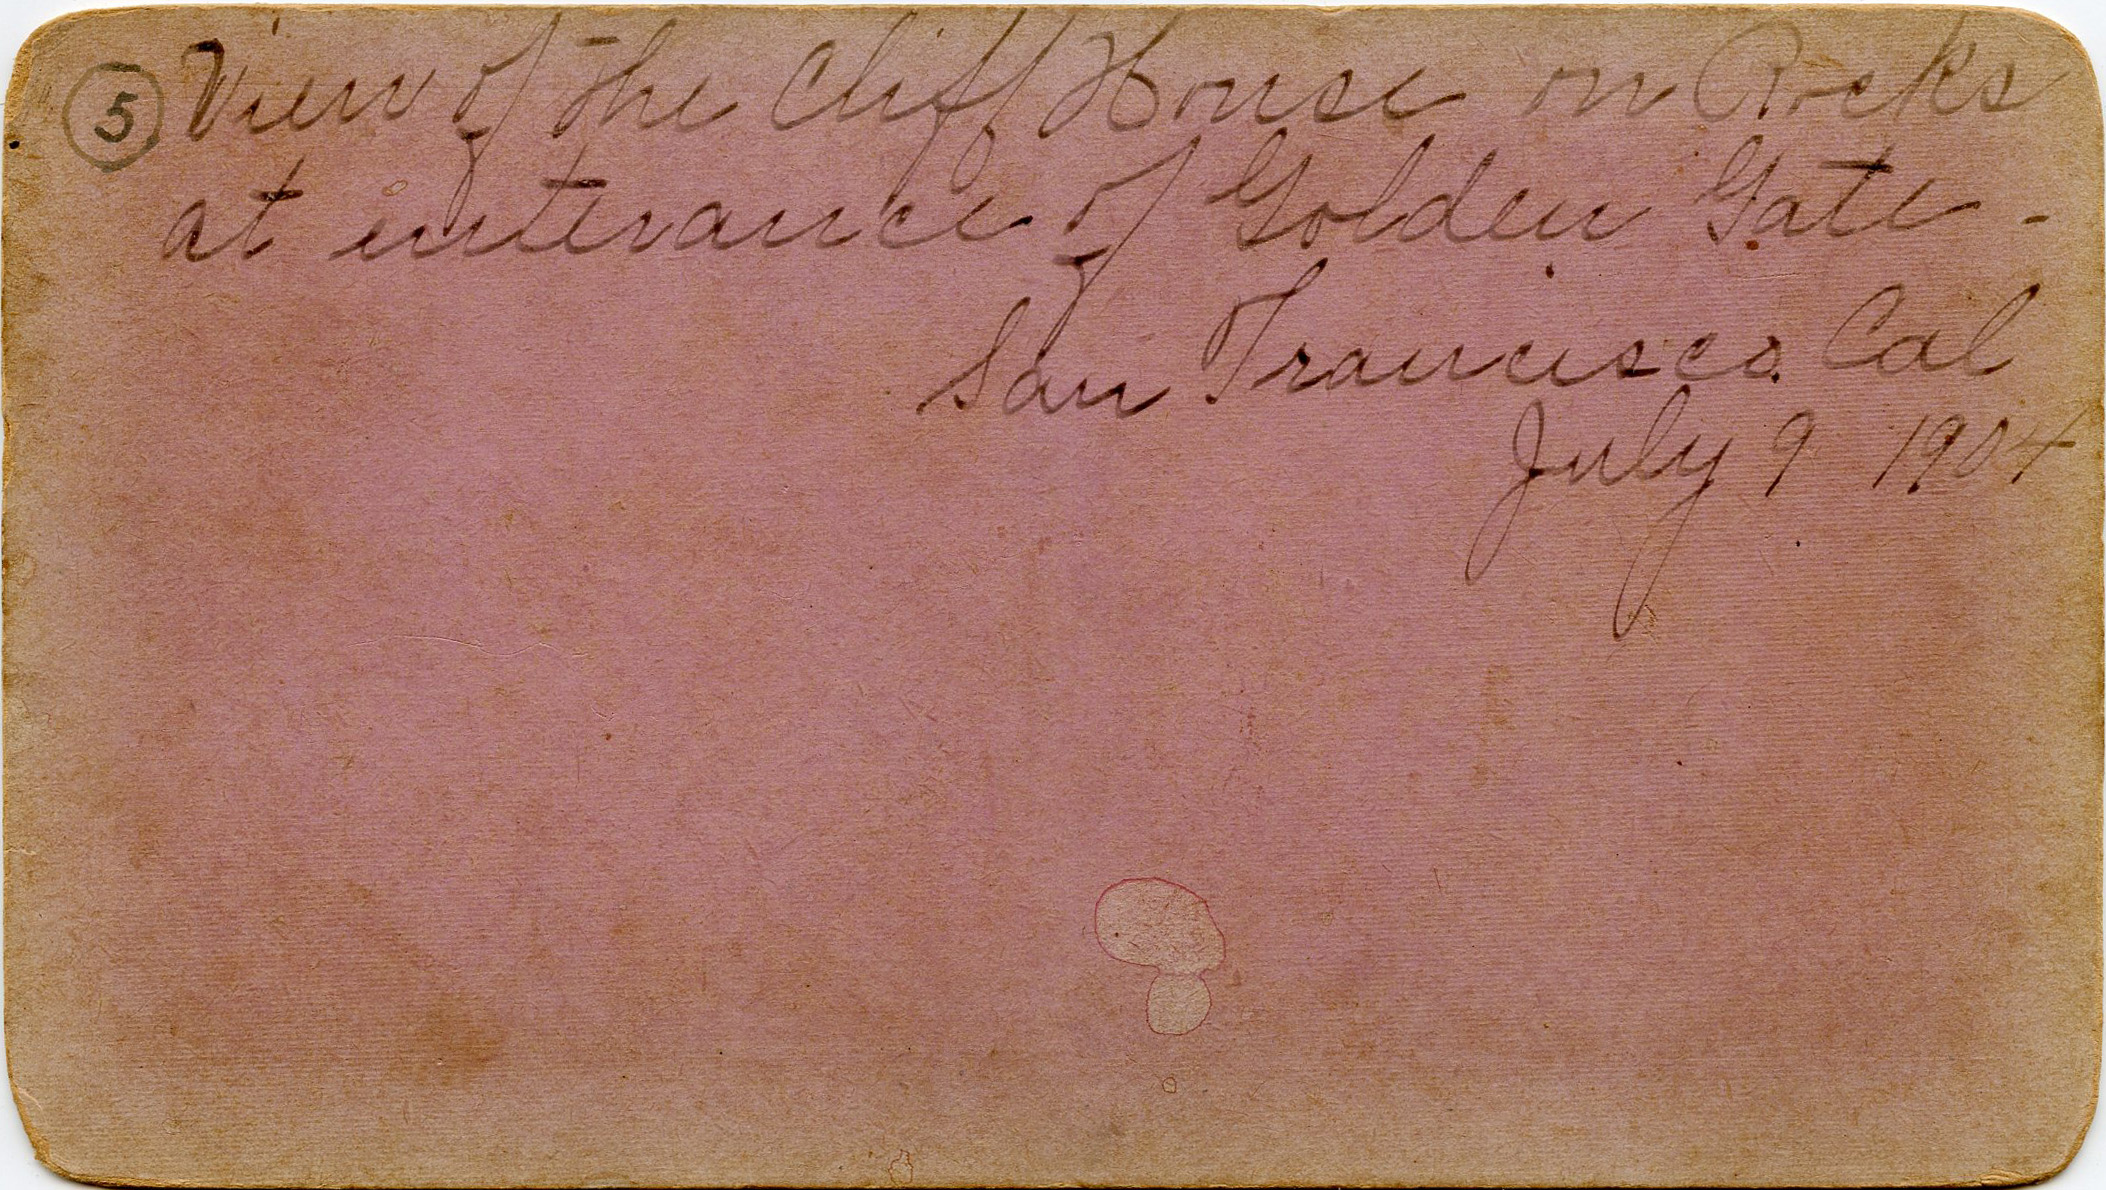 5 View of the Cliff House on Rocks
at enterance of Golden Gate -
San Francisco. Cal
July 9 1904